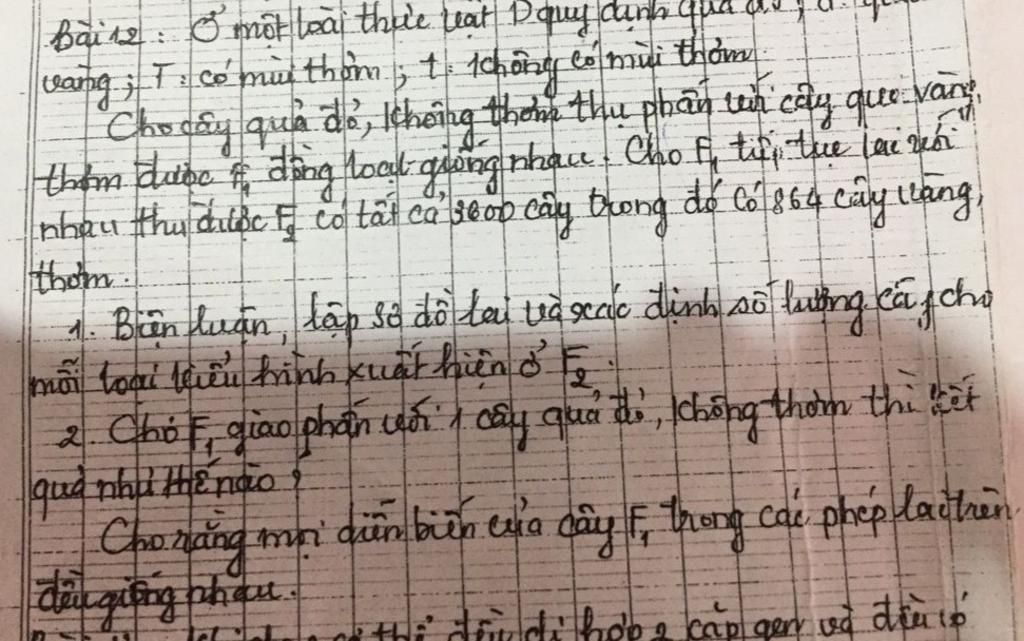 Bài 12: Ở một loài thực vật D quy định quả đỏ; d: quả
vàng; T: có mùi thơm; t: không có mùi thơm.
Cho cây quả đỏ, không thơm thụ phấn với cây quả vàng,
thơm được F1 đồng loạt giống nhau. Cho F1 tiếp tục lai với
nhau thu được F2 có tất cả cây trong đó có 864 cây vàng,
thơm.
1. Biện luận, lập sơ đồ lai và xác định số lượng cây cho
mỗi loại kiểu hình xuất hiện ở F2.
2. Cho F1 giao phấn với 1 cây quả đỏ, không thơm thì kết
quả như thế nào?
Cho rằng mọi diễn biến của cây F1 trong các phép lai trên
đều giống nhau.
thể đều dị hợp 2 cặp gen và đều có